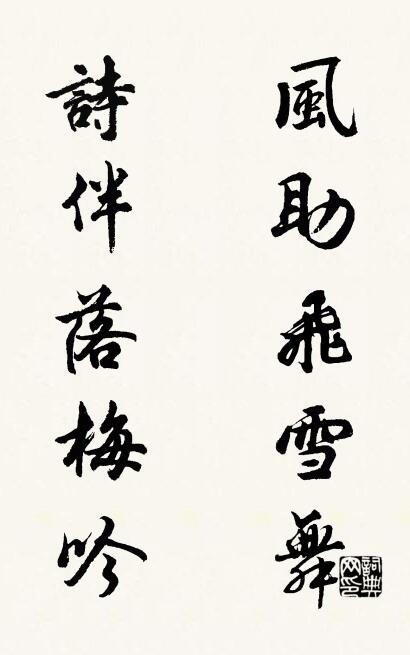 風助飛雪舞
詩伴落梅吟
詞典网印